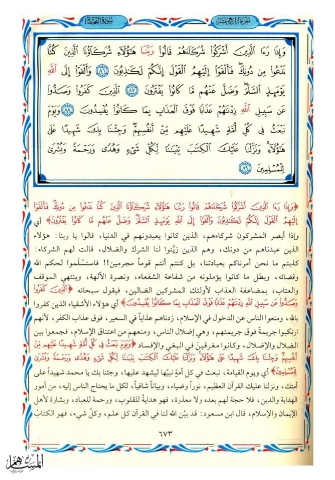 وَإِذَا رَءَا الَّذِينَ أَشْرَكُوا شُرَكَاءَهُمْ قَالُوا رَبَّنَا هَٰؤُلَاءِ شُرَكَاؤُنَا الَّذِينَ كُنَّا
نَدْعُوا مِن دُونِكَ فَأَلْقَوْا إِلَيْهِمُ الْقَوْلَ إِنَّكُمْ لَكَاذِبُونَ ﴿٨٦﴾ وَأَلْقَوْا إِلَى اللَّهِ
يَوْمَئِذٍ السَّلَمَ وَضَلَّ عَنْهُم مَّا كَانُوا يَفْتَرُونَ ﴿٨٧﴾ الَّذِينَ كَفَرُوا وَصَدُّوا
عَن سَبِيلِ اللَّهِ زِدْنَاهُمْ عَذَابًا فَوْقَ الْعَذَابِ بِمَا كَانُوا يُفْسِدُونَ ﴿٨٨﴾ وَيَوْمَ
نَبْعَثُ فِي كُلِّ أُمَّةٍ شَهِيدًا عَلَيْهِم مِّنْ أَنفُسِهِمْ وَجِئْنَا بِكَ شَهِيدًا عَلَىٰ
هَٰؤُلَاءِ وَنَزَّلْنَا عَلَيْكَ الْكِتَابَ تِبْيَانًا لِّكُلِّ شَيْءٍ وَهُدًى وَرَحْمَةً وَبُشْرَىٰ
لِلْمُسْلِمِينَ ﴿٨٩﴾
﴿وَإِذَا رَءَا الَّذِينَ أَشْرَكُوا شُرَكَاءَهُمْ قَالُوا رَبَّنَا هَٰؤُلَاءِ شُرَكَاؤُنَا الَّذِينَ كُنَّا نَدْعُوا مِن دُونِكَ فَأَلْقَوْا
إِلَيْهِمُ الْقَوْلَ إِنَّكُمْ لَكَاذِبُونَ وَأَلْقَوْا إِلَى اللَّهِ يَوْمَئِذٍ السَّلَمَ وَضَلَّ عَنْهُم مَّا كَانُوا يَفْتَرُونَ﴾ أي
وإذا أبصر المشركون شركاءهم، الذين كانوا يعبدونهم في الدنيا، قالوا يا ربنا: هؤلاء
الذين عبدناهم من دونك، وهم الذين زينوا لنا الشرك والضلال، قالت لهم الشركاء:
كذبتم ما نحن أمرناكم بعبادتنا، بل كنتم أنتم قوماً مجرمين!! فاستسلموا لحكم الله
وقضائه، وبطل ما كانوا يؤملونه من شفاعة الشفعاء، ونصرة الآلهة، وينتهي الموقف
والعتاب، بمضاعفة العذاب لأولئك المشركين الضالين، فيقول سبحانه ﴿الَّذِينَ كَفَرُوا
وَصَدُّوا عَن سَبِيلِ اللَّهِ زِدْنَاهُمْ عَذَابًا فَوْقَ الْعَذَابِ بِمَا كَانُوا يُفْسِدُونَ﴾ أي هؤلاء الأشقياء الذين كفروا
بالله، ومنعوا الناس عن الدخول في الإسلام، زدناهم عذاباً في السعير، فوق عذاب الكفر، لأنهم
ارتكبوا جريمة فوق جريمتهم، وهي إضلال الناس، ومنعهم من اعتناق الإسلام، فجمعوا بين
الضلال والإضلال، وكانوا مغرقين في البغي والإفساد ﴿وَيَوْمَ نَبْعَثُ فِي كُلِّ أُمَّةٍ شَهِيدًا عَلَيْهِم مِّنْ
أَنفُسِهِمْ وَجِئْنَا بِكَ شَهِيدًا عَلَىٰ هَٰؤُلَاءِ وَنَزَّلْنَا عَلَيْكَ الْكِتَابَ تِبْيَانًا لِّكُلِّ شَيْءٍ وَهُدًى وَرَحْمَةً وَبُشْرَىٰ
لِلْمُسْلِمِينَ﴾ أي ويوم القيامة، نبعث في كل أمة نبيها ليشهد عليها، وجئنا بك يا محمد شهيداً على
أمتك، ونزلنا عليك القرآن العظيم، نوراً وضياء، وبياناً شافياً، لكل ما يحتاج الناس إليه، من أمور
الهداية والدين، فلا حجة لهم بعده ولا معذرة، فهو هداية للقلوب، ورحمة للعباد، وبشارة لأهل
الإيمان والإسلام، قال ابن مسعود: قد بين الله لنا في القرآن كل علم، وكل شيء، فهو الكتاب
٦٧٣